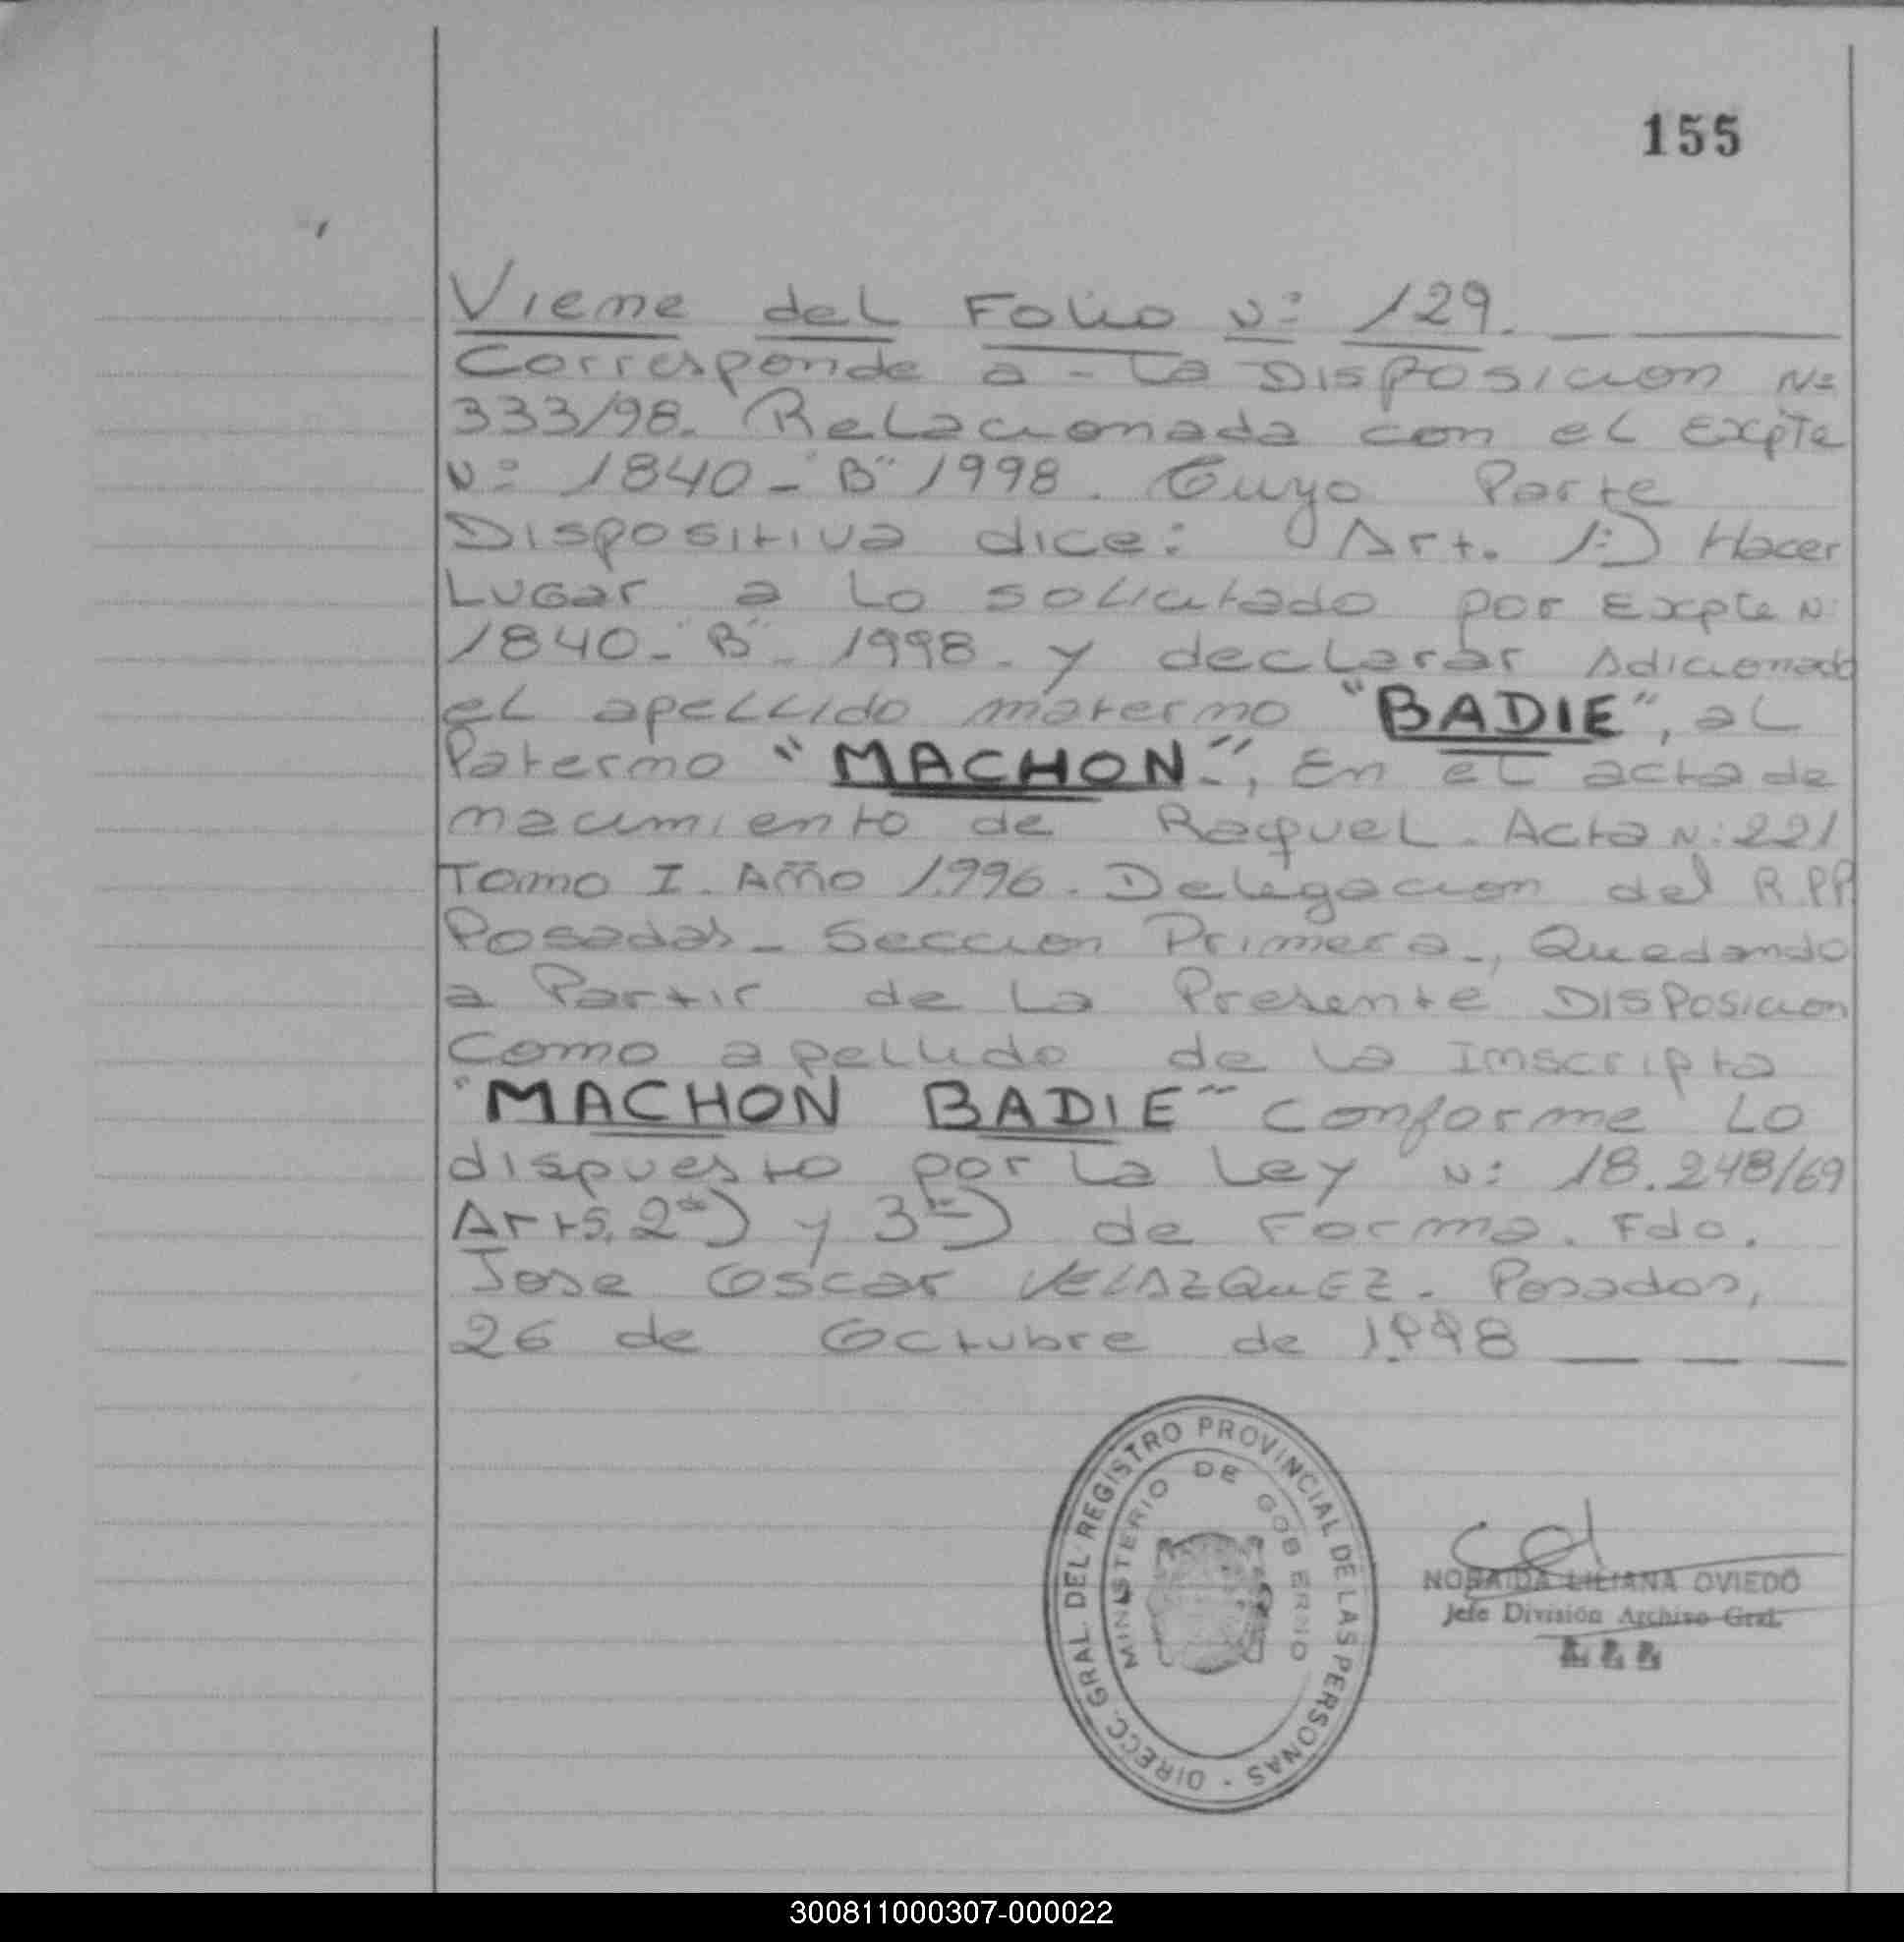 155
Viene del Folio Nº 129.
Corresponde a - La Disposicion Nº
333/98. Relacionada con el Expte
Nº 1840 - "B" 1998. Cuyo Parte
Dispositiva dice: Art. 1º) Hacer
Lugar a Lo solicitado por Expte Nº
1840 - "B" - 1998 - y declarar Adicionado
el apellido materno "BADIE", al
Paterno "MACHON.-", En el acta de
nacimiento de Raquel. Acta Nº 221
Tomo I. Año 1.996. Delegacion del R.PP
Posadas - Seccion Primera -, Quedando
a Partir de La Presente Disposicion
Como apellido de La Inscripta
"MACHON BADIE" conforme Lo
dispuesto por La Ley Nº 18.248/69
Arts. 2º) y 3º) de Forma. Fdo.
Jose Oscar VELAZQUEZ. Posadas,
26 de Octubre de 1.998
DIRECC. GRAL. DEL REGISTRO PROVINCIAL DE LAS PERSONAS -
MINISTERIO DE GOBIERNO
LILIANA OVIEDO
Jefe División Archivo Gral.
300811000307-000022